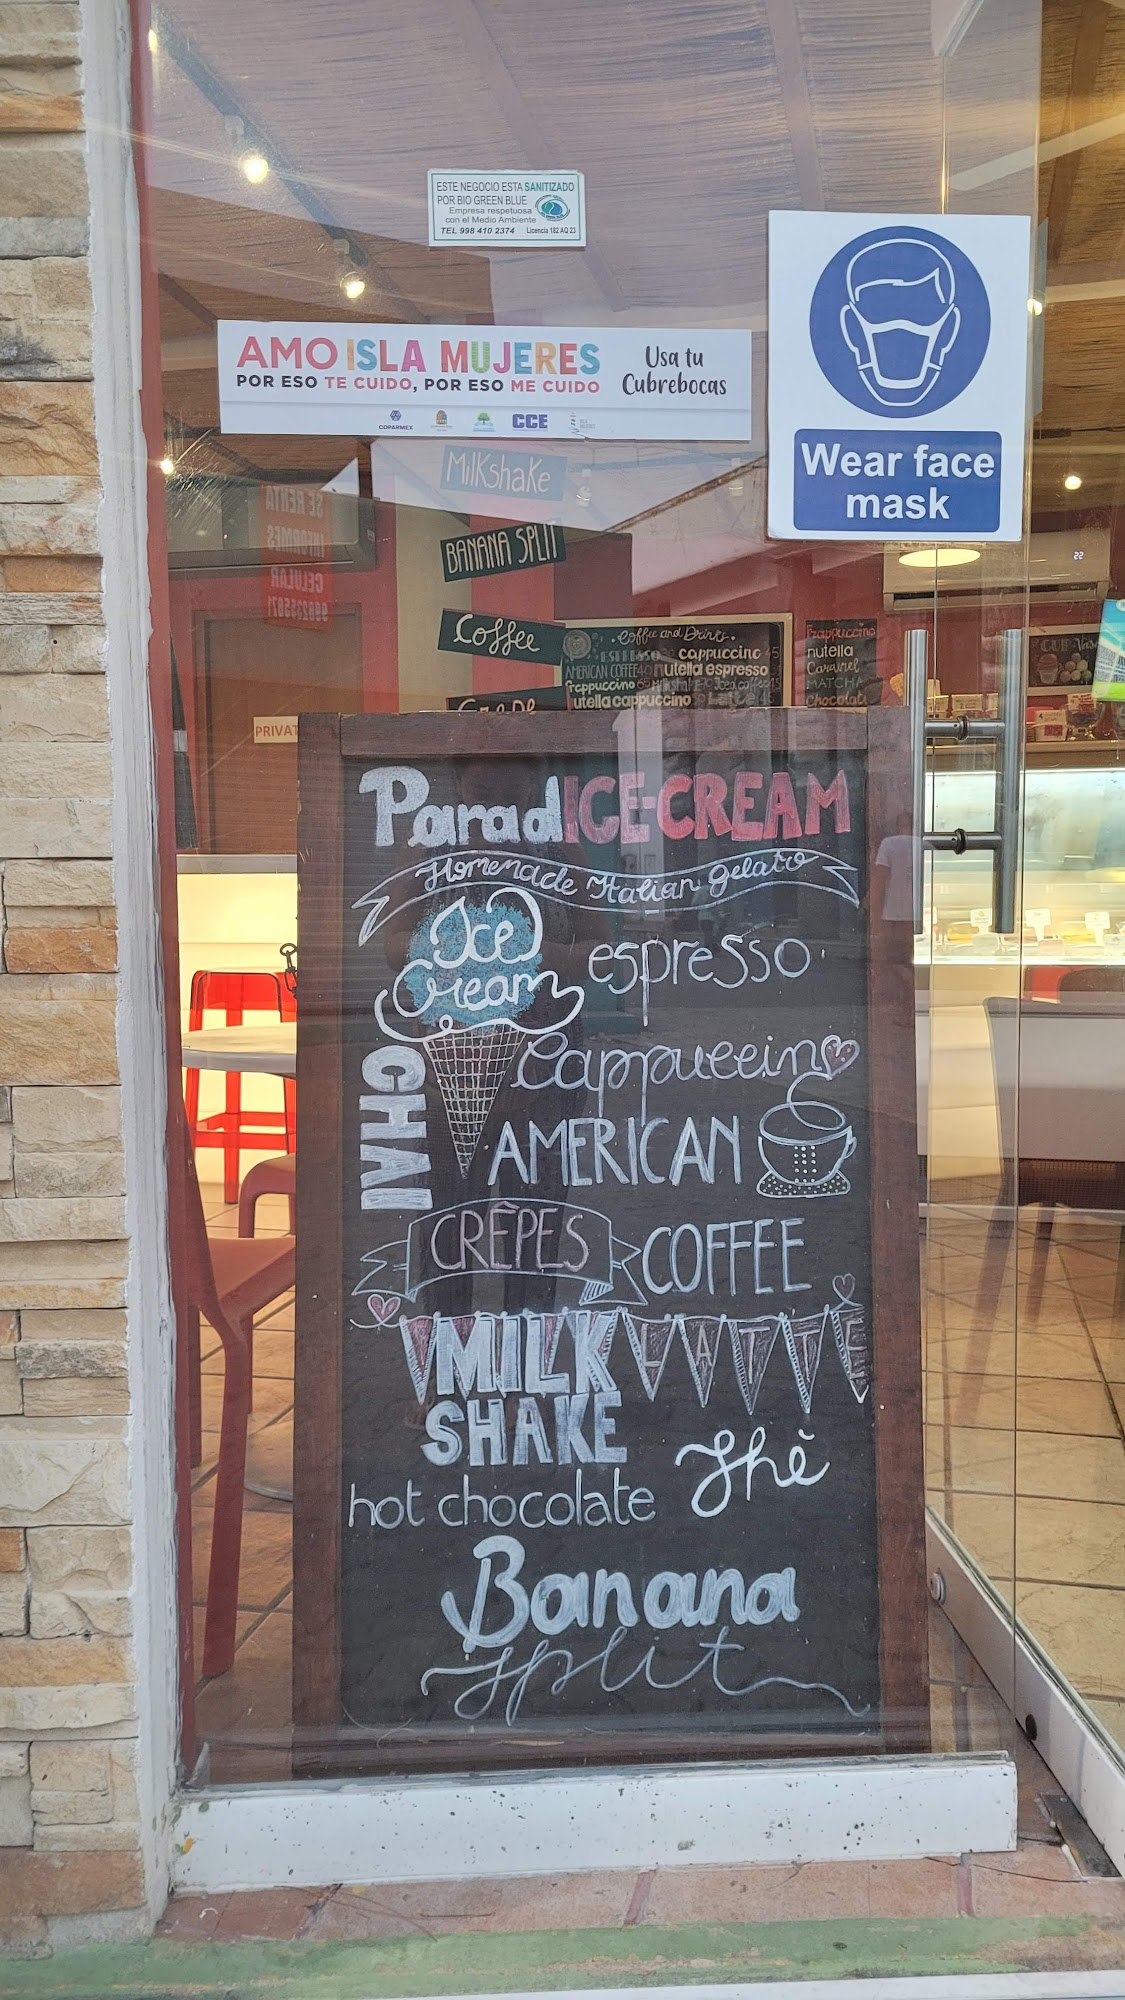 ESTE NEGOCIO ESTA SANITIZADO
POR BIO GREEN BLUE
Empresa respetuosa
con el Medio Ambiente
TEL 998 410 2374 Licencia 182 AQ 23
AMO ISLA MUJERES
POR ESO TE CUIDO, POR ESO ME CUIDO
Usa tu
Cubrebocas
COPARMEX
CCE
Wear face
mask
Milkshake
BANANA SPLIT
Coffee
Crepe
SE RENTA
INFORMES
CELULAR
Coffee and Drinks
ESPRESSO cappuccino 45
AMERICAN COFFEE 40 nutella espresso
frappuccino 65 Milkshake 70 Iced coffee 45
utella cappuccino
frappuccino
nutella
Caramel
MATCHA
Chocolate
PRIVAT
ParadICE-CREAM
Homemade Italian gelato
Ice
Cream
espresso
Cappuccino
CHAI
AMERICAN
CRÊPES
COFFEE
MILK
SHAKE
LATTE
Thè
hot chocolate
Banana
split